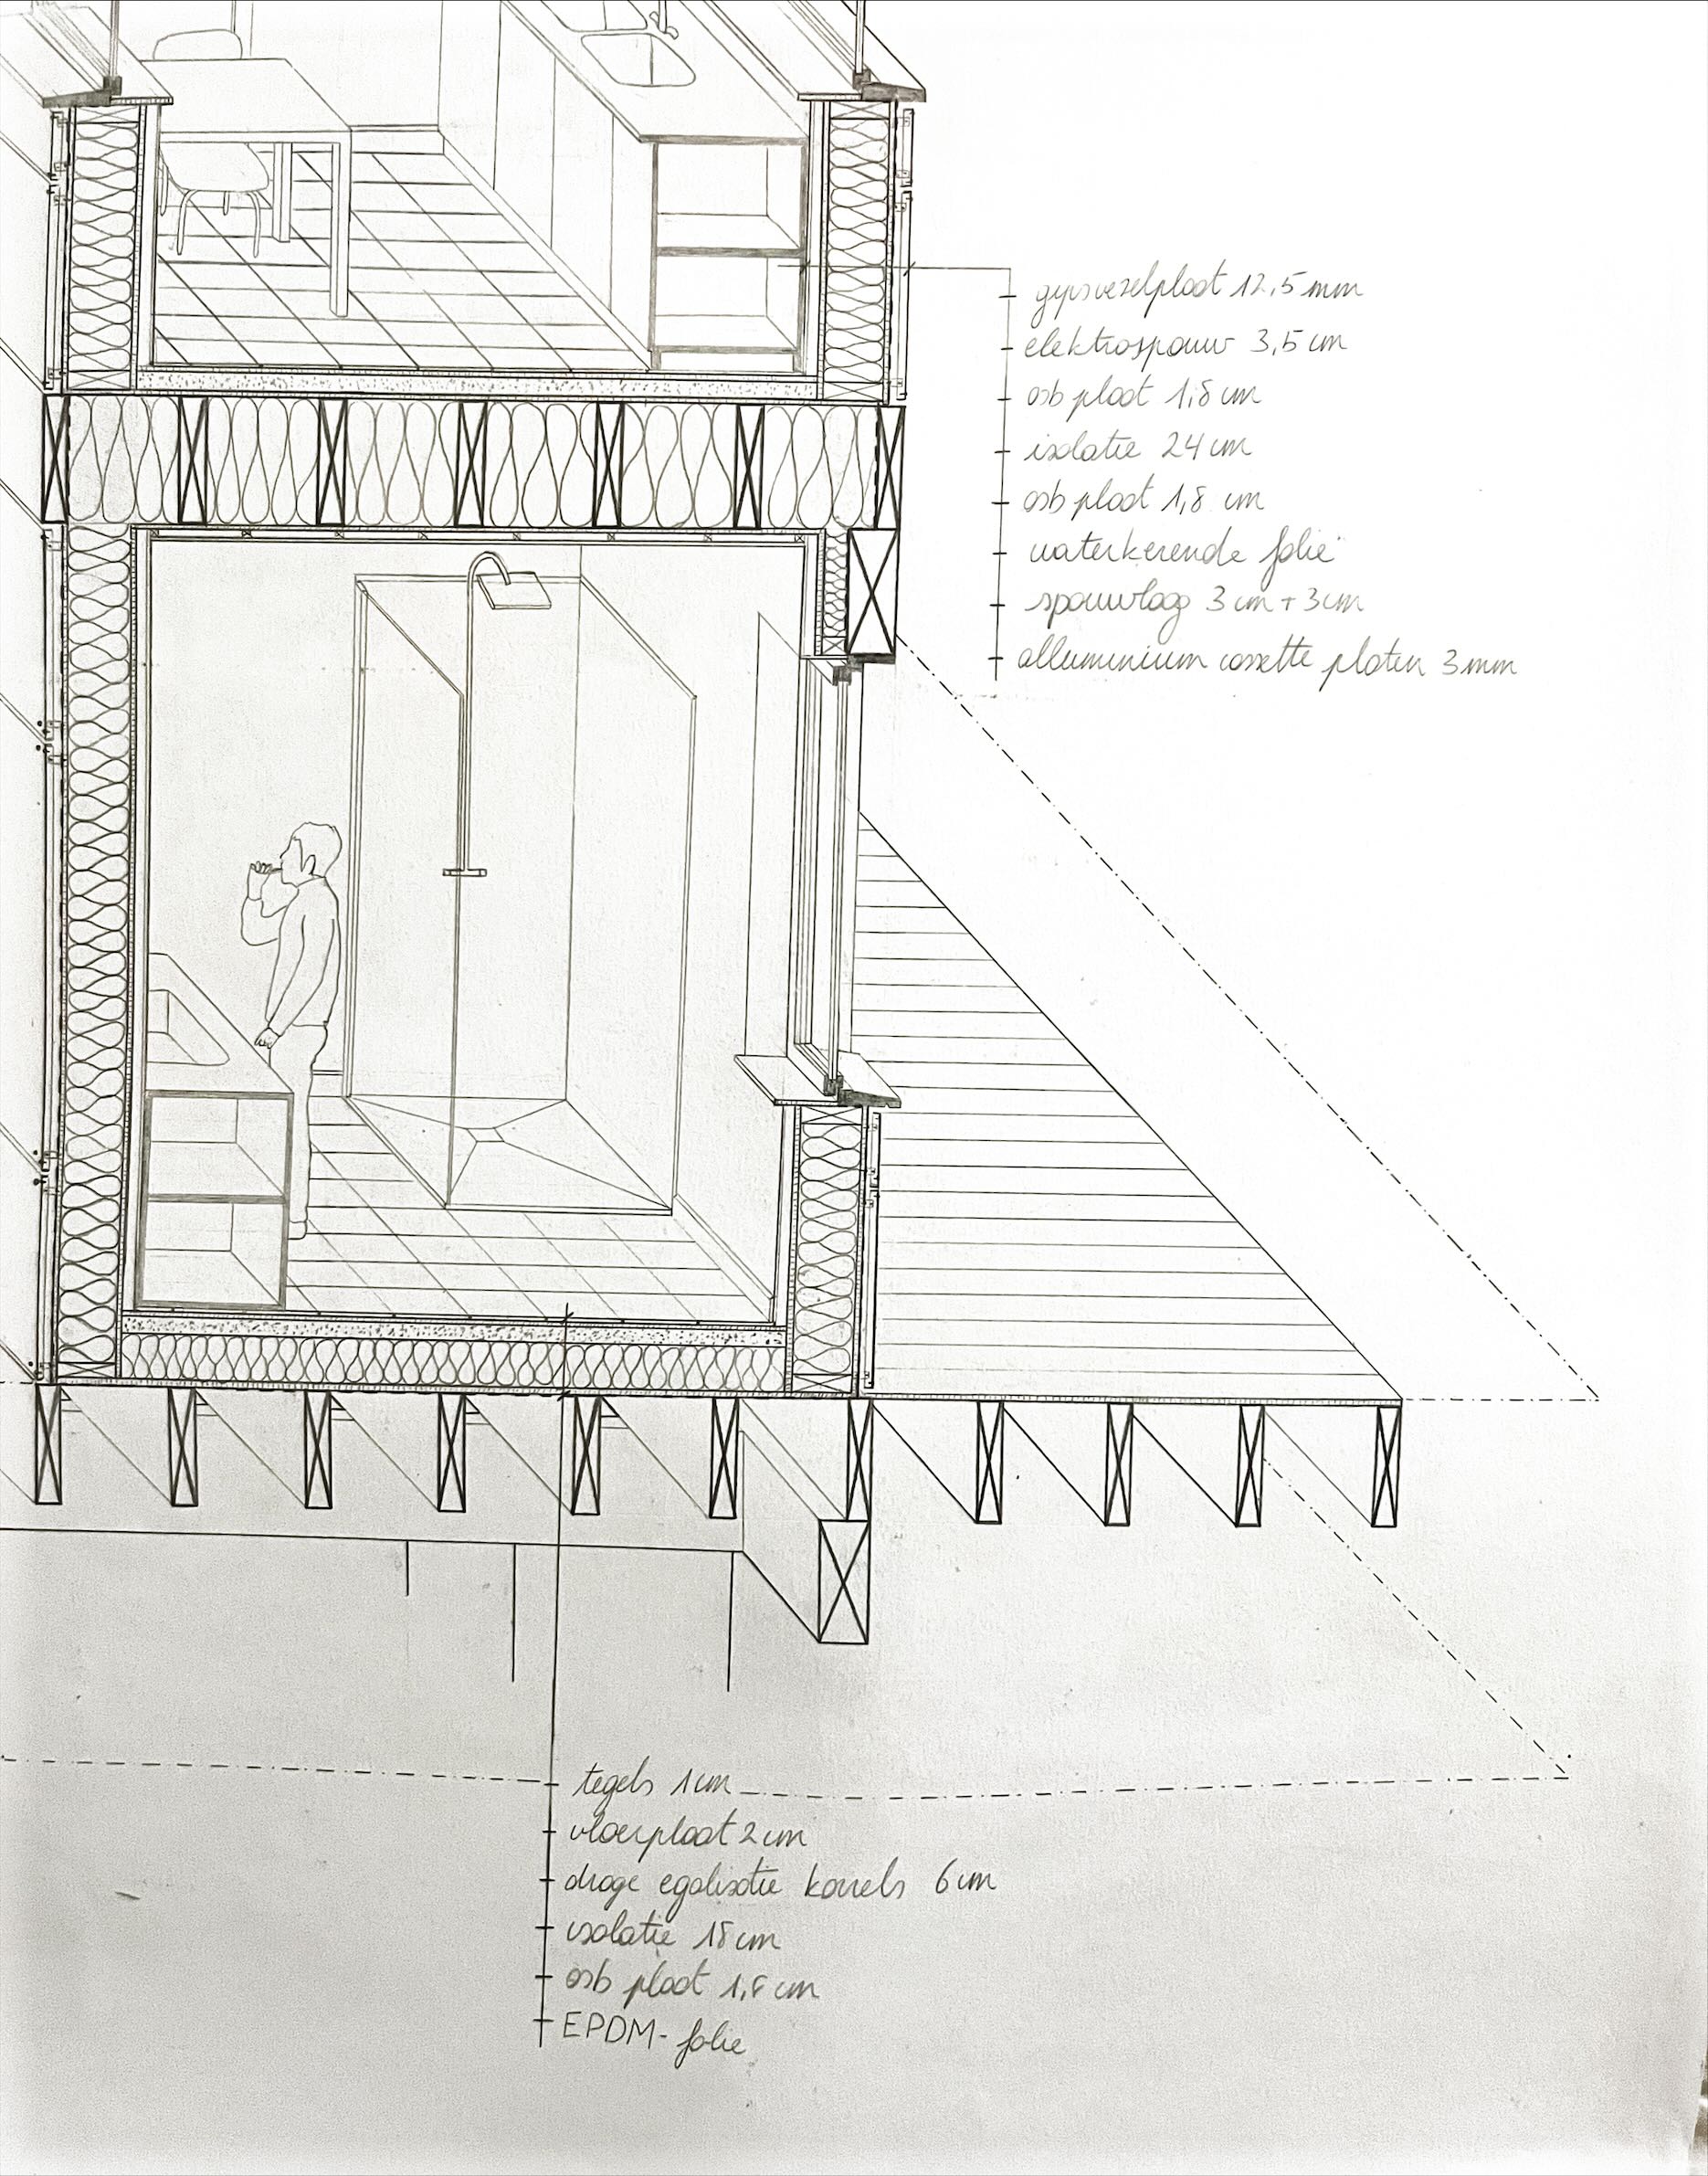 gipsvezelplaat 12,5 mm
elektrospouw 3,5 cm
osb plaat 1,8 cm
isolatie 24 cm
osb plaat 1,8 cm
waterkerende folie
spouwlaag 3 cm + 3 cm
alluminium cassette platen 3 mm
tegels 1 cm
vloerplaat 2 cm
droge egalisatie korrels 6 cm
isolatie 18 cm
osb plaat 1,8 cm
EPDM-folie